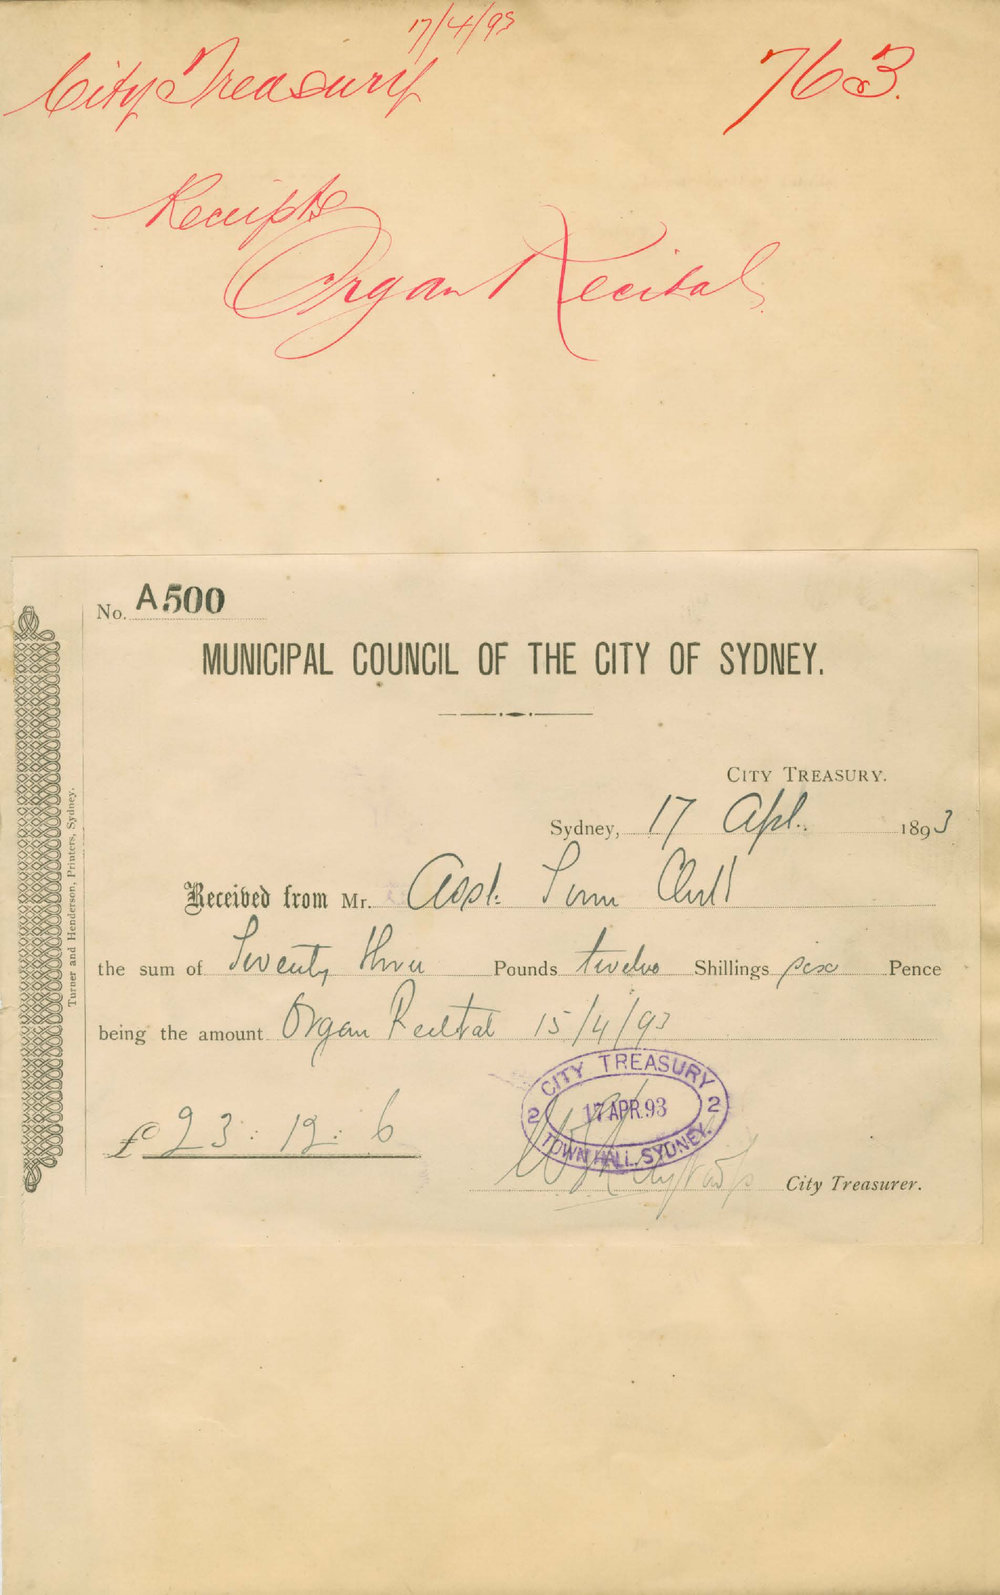 17/4/93
City Treasury 763.
Receipts
Organ Recital
No. A500
MUNICIPAL COUNCIL OF THE CITY OF SYDNEY.
CITY TREASURY.
Sydney, 17 Apl. 1893
Received from Mr. Asst. Town Clerk
the sum of Seventy three Pounds twelve Shillings six Pence
being the amount Organ Recital 15/4/93
£73: 12: 6
CITY TREASURY
2 17 APR. 93 2
TOWN HALL, SYDNEY.
City Treasurer.
Turner and Henderson, Printers, Sydney.